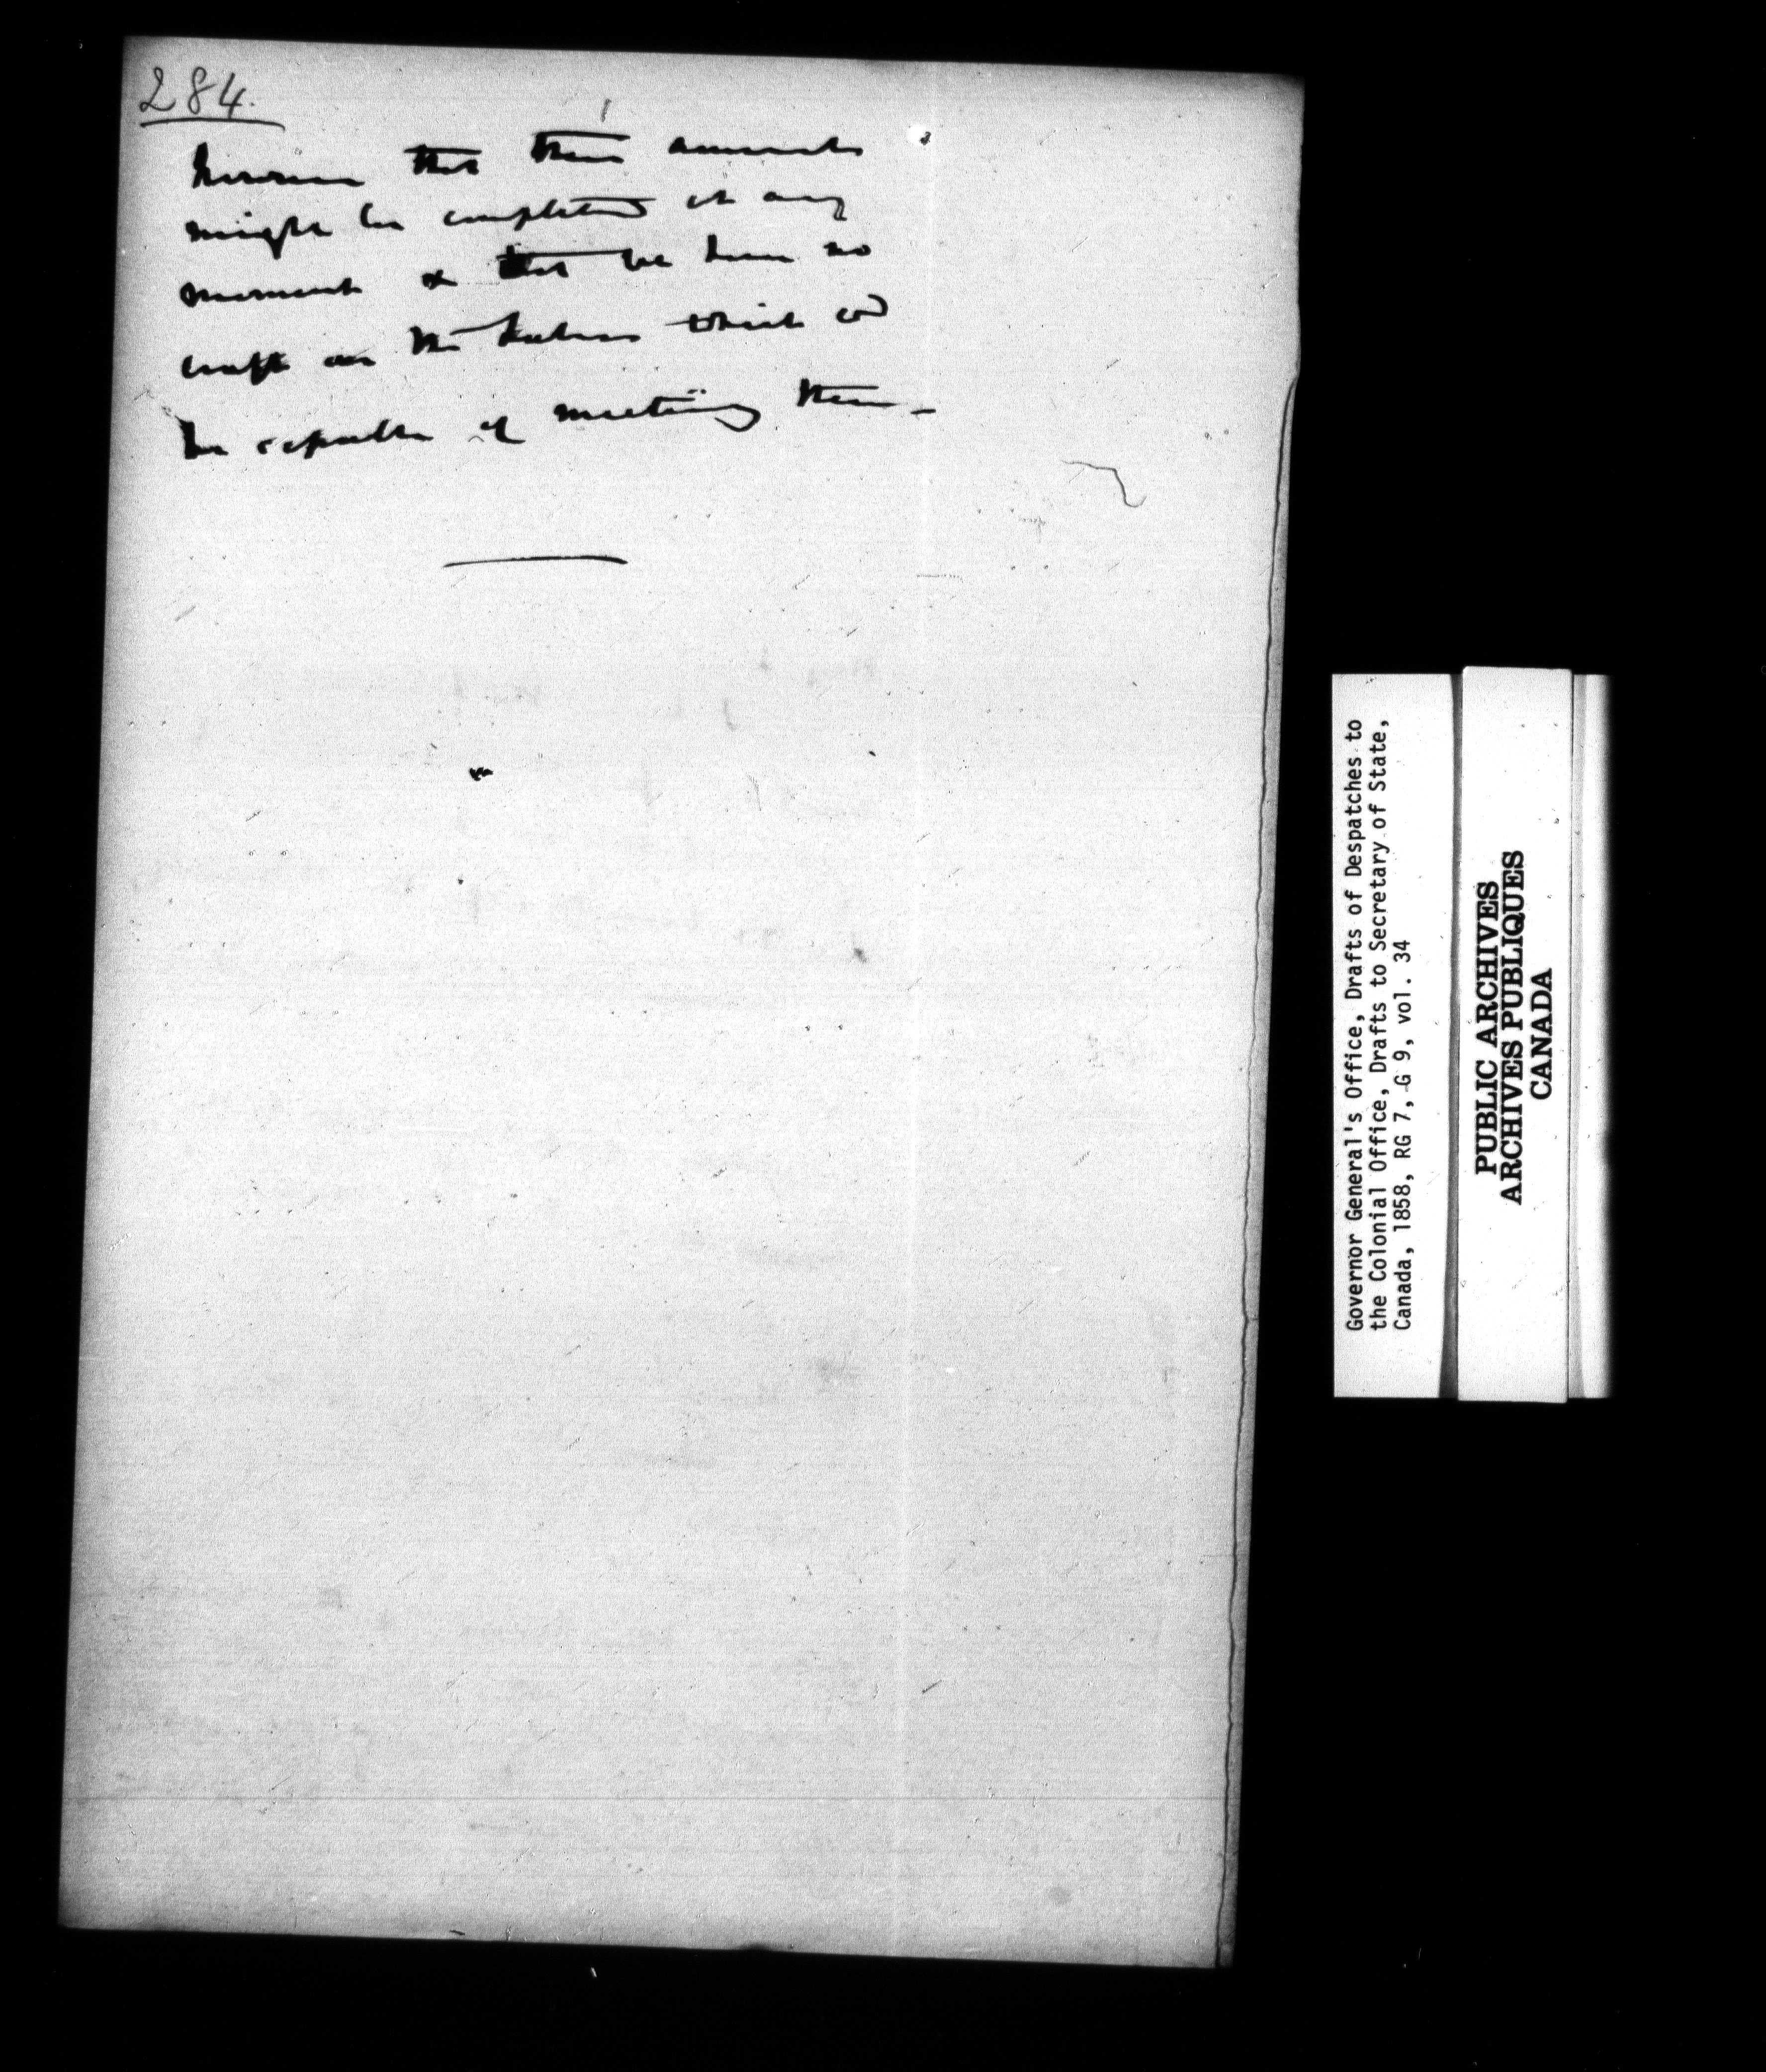 284.
however that their armaments
might be completed at any
moment & that we have no
craft on the Lakes which cd
be capable of meeting them—
Governor General's Office, Drafts of Despatches to
the Colonial Office, Drafts to Secretary of State,
Canada, 1858, RG 7, G 9, vol. 34
PUBLIC ARCHIVES
ARCHIVES PUBLIQUES
CANADA